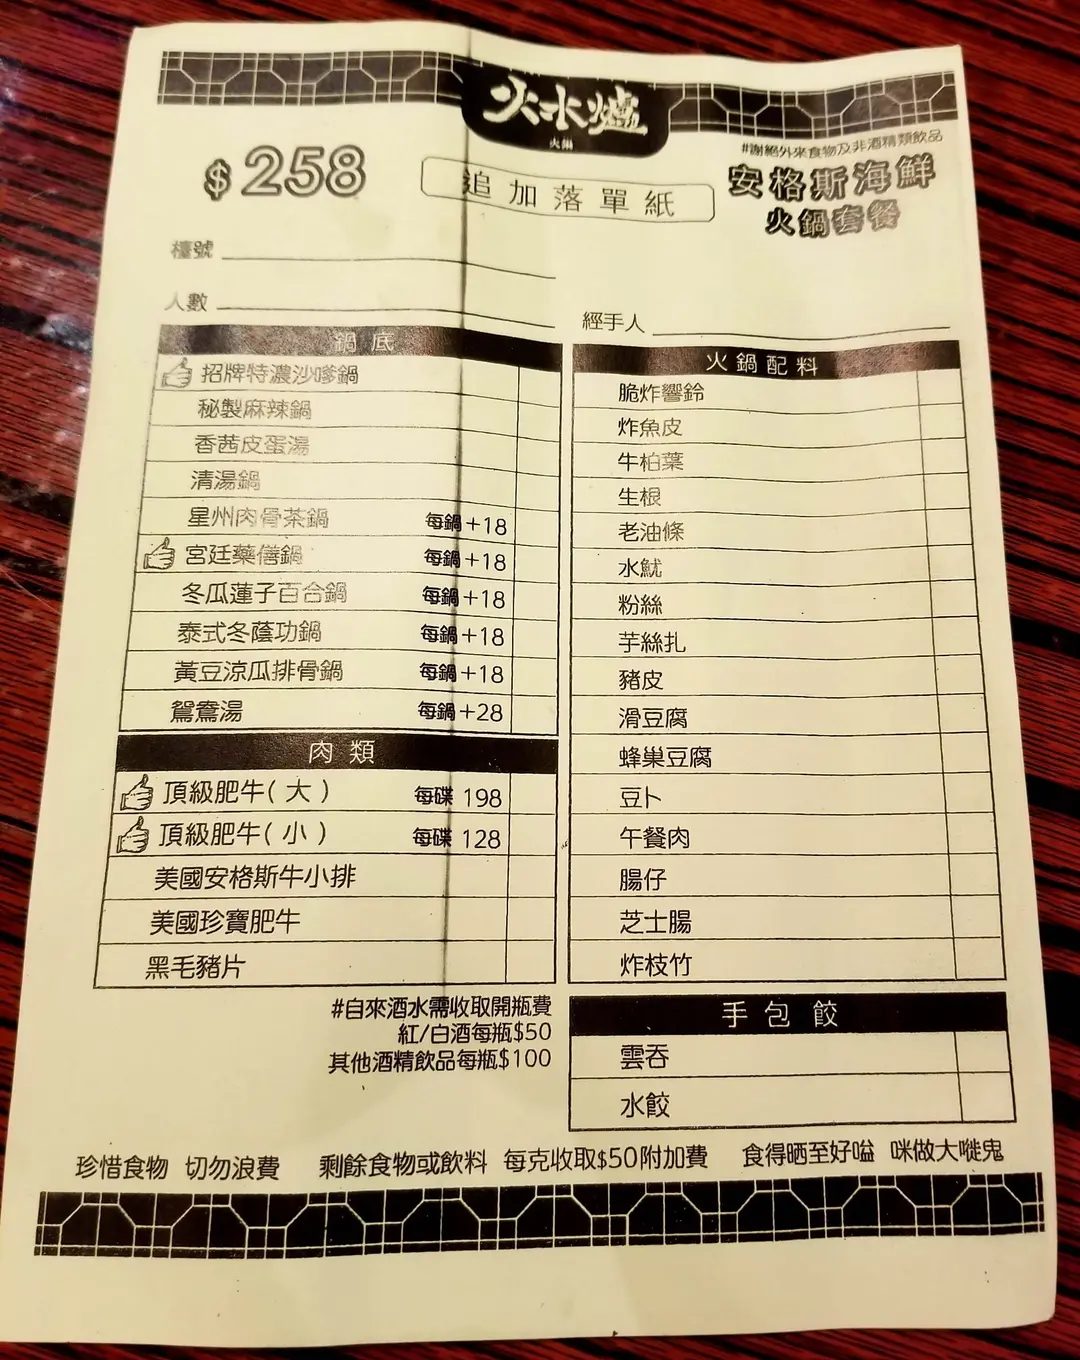 火水爐
火鍋
#謝絕外來食物及非酒精類飲品
$258
追加落單紙
安格斯海鮮
火鍋套餐
檯號
人數
經手人
鍋底
招牌特濃沙嗲鍋
秘製麻辣鍋
香茜皮蛋湯
清湯鍋
星州肉骨茶鍋 每鍋+18
宮廷藥僐鍋 每鍋+18
冬瓜蓮子百合鍋 每鍋+18
泰式冬蔭功鍋 每鍋+18
黃豆涼瓜排骨鍋 每鍋+18
鴛鴦湯 每鍋+28
肉類
頂級肥牛(大) 每碟 198
頂級肥牛(小) 每碟 128
美國安格斯牛小排
美國珍寶肥牛
黑毛豬片
#自來酒水需收取開瓶費
紅/白酒每瓶$50
其他酒精飲品每瓶$100
火鍋配料
脆炸響鈴
炸魚皮
牛柏葉
生根
老油條
水魷
粉絲
芋絲扎
豬皮
滑豆腐
蜂巢豆腐
豆卜
午餐肉
腸仔
芝士腸
炸枝竹
手包餃
雲吞
水餃
珍惜食物 切勿浪費 剩餘食物或飲料 每克收取$50附加費 食得晒至好嗌 咪做大嘥鬼